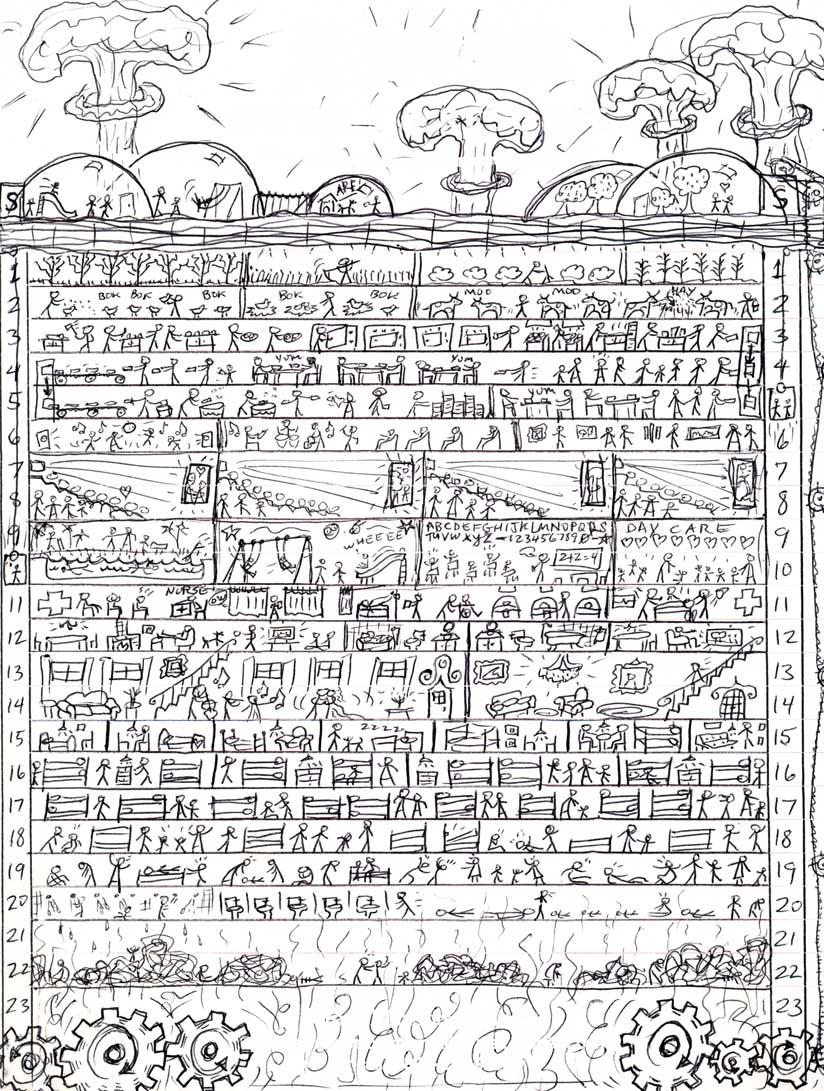 S S
1 1
BOK BOK BOK BOK BOK MOO MOO HAY
2 2
3 3
YUM YUM
4 4
YUM
5 5
6 6
7 7
8 8
WHEEEE
ABCDEFGHIJKLMNOPQRS
TUVWXYZ
DAY CARE
9 9
2+2=4
10 10
NURSE
11 11
12 12
13 13
14 14
ZZZZ
15 15
16 16
17 17
18 18
19 19
20 20
21 21
22 22
23 23